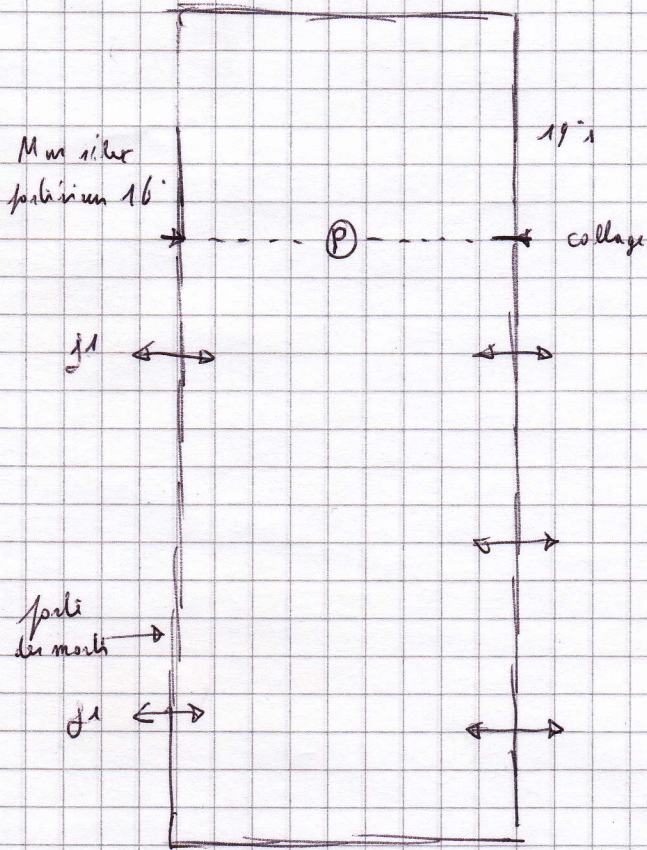 19 s
Mur silex
postérieur 16
P
collage
g1
porte
des morts
g1